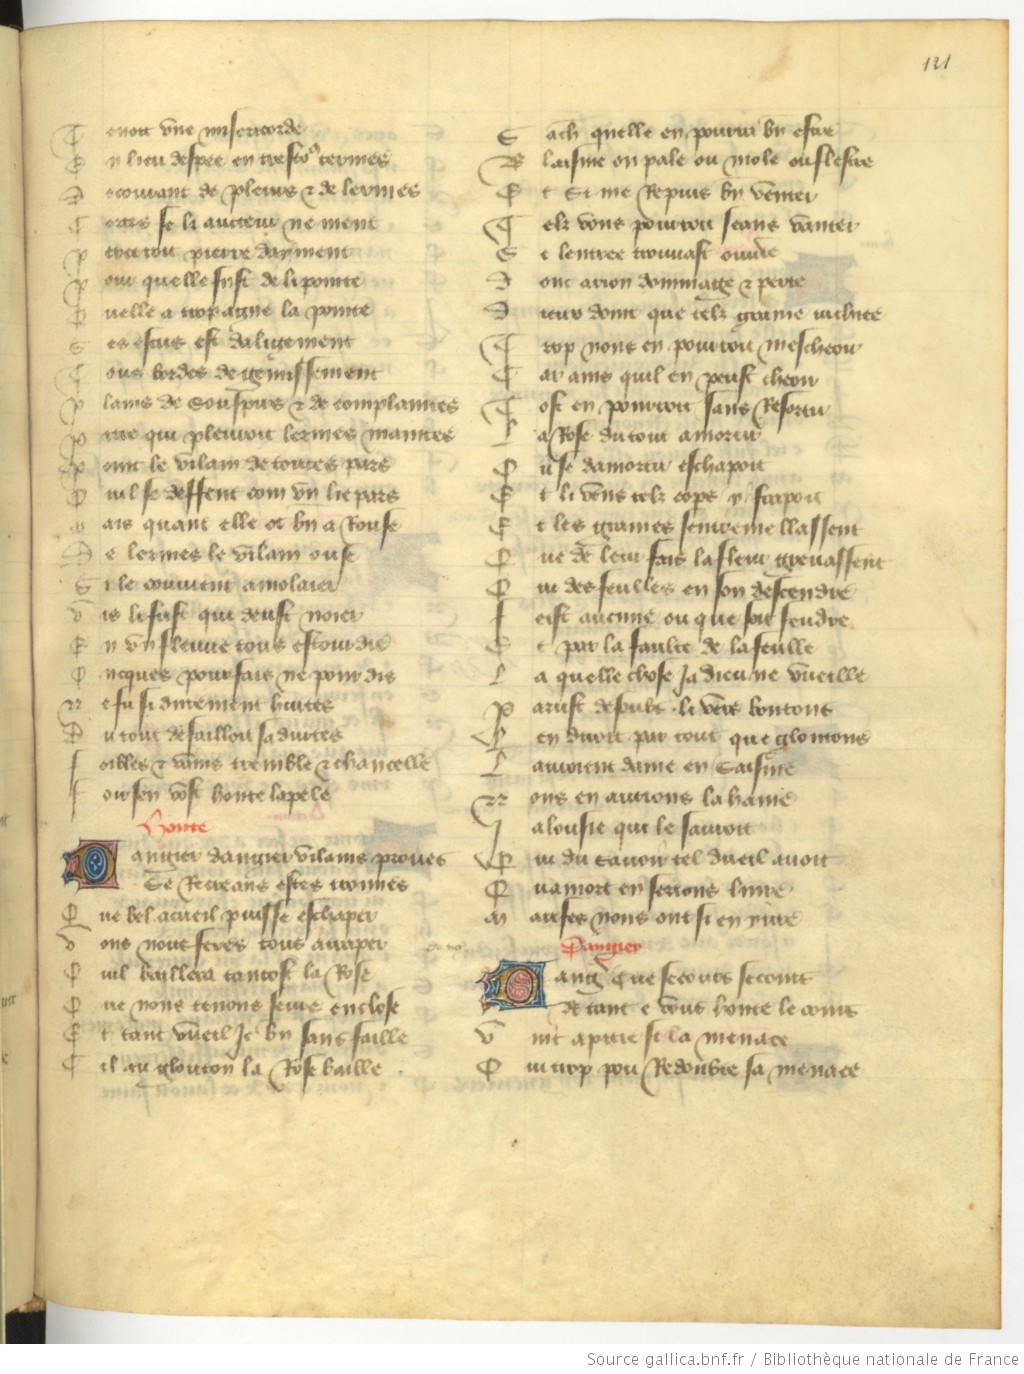 131
Tenoit vne misericorde
En lieu despee en trestoꝰ termes
Decourant de pleurs & de lermes
Ceste se li aucteur ne ment
Perceroit pierre dayment
Pour quelle fust de li pointe
Quelle a trop ague la pointe
Ses escus est dalegement
Tous bordes de gemissement
Plains de souspirs & de complaintes
Pitie qui pleuroit lermes maintes
Point le vilain de toutes pars
Qui se deffent com vn liepars
Mais quant elle ot bn arouse
De lermes le vilain ouse
Si le couuent amoloier
Vis li fust qui deust noier
En vn fleuue tous estourdis
Oncques pour fais ne pour dis
Ne fu si durement hurtes
Du tout defailloit sa durtes
Foibles & vains tremble & chancelle
Fouir sen vost honte lapele
Honte
Dangier dangier vilains proues
Se Recreans estes trouues
Que bel acueil puisse eschaper
Vous nous feres tous atraper
Quil baillera tantost la Rose
Que nous tenons seure enclose
Et tant vueil Je bn sans faille
Cil au glouton la Rose baille
Sach quelle en pourra bn estre
Blaisme ou pale ou mole ou flestre
Et si me Repuis bn venter
Telz vens pourroit seans vanter
Se lentree trouuast ouuerte
Dont arion dommage & perte
Trop nous en pourroit mescheoir
Car ains quil en peust cheoir
Tost en pourroit sans Resortir
La Rose du tout amortir
Ou se damortir eschapoit
Et li vens telz cops y frapoit
Que de leur fais la fleur greuassent
Qui des feulles en son descendre
Feist aucune ou que soit fendre
Et par la faulte de la feulle
La quelle chose Ja dieu ne vueille
Parust desoubz li vers boutons
Len diroit par tout que gloutons
Lauroient dame en saisine
Nous en aurions la haine
Jalousie qui le sauroit
Qui du sauoir tel dueil auroit
Qua mort en serions liure
Maufes nous ont si en yure
Dangier
Dangͬ crie secours secours
Et tant e vous honte le cours
Vint a pitie si la menace
Qui trop pou Redoubte sa menace
Source gallica.bnf.fr / Bibliothèque nationale de France